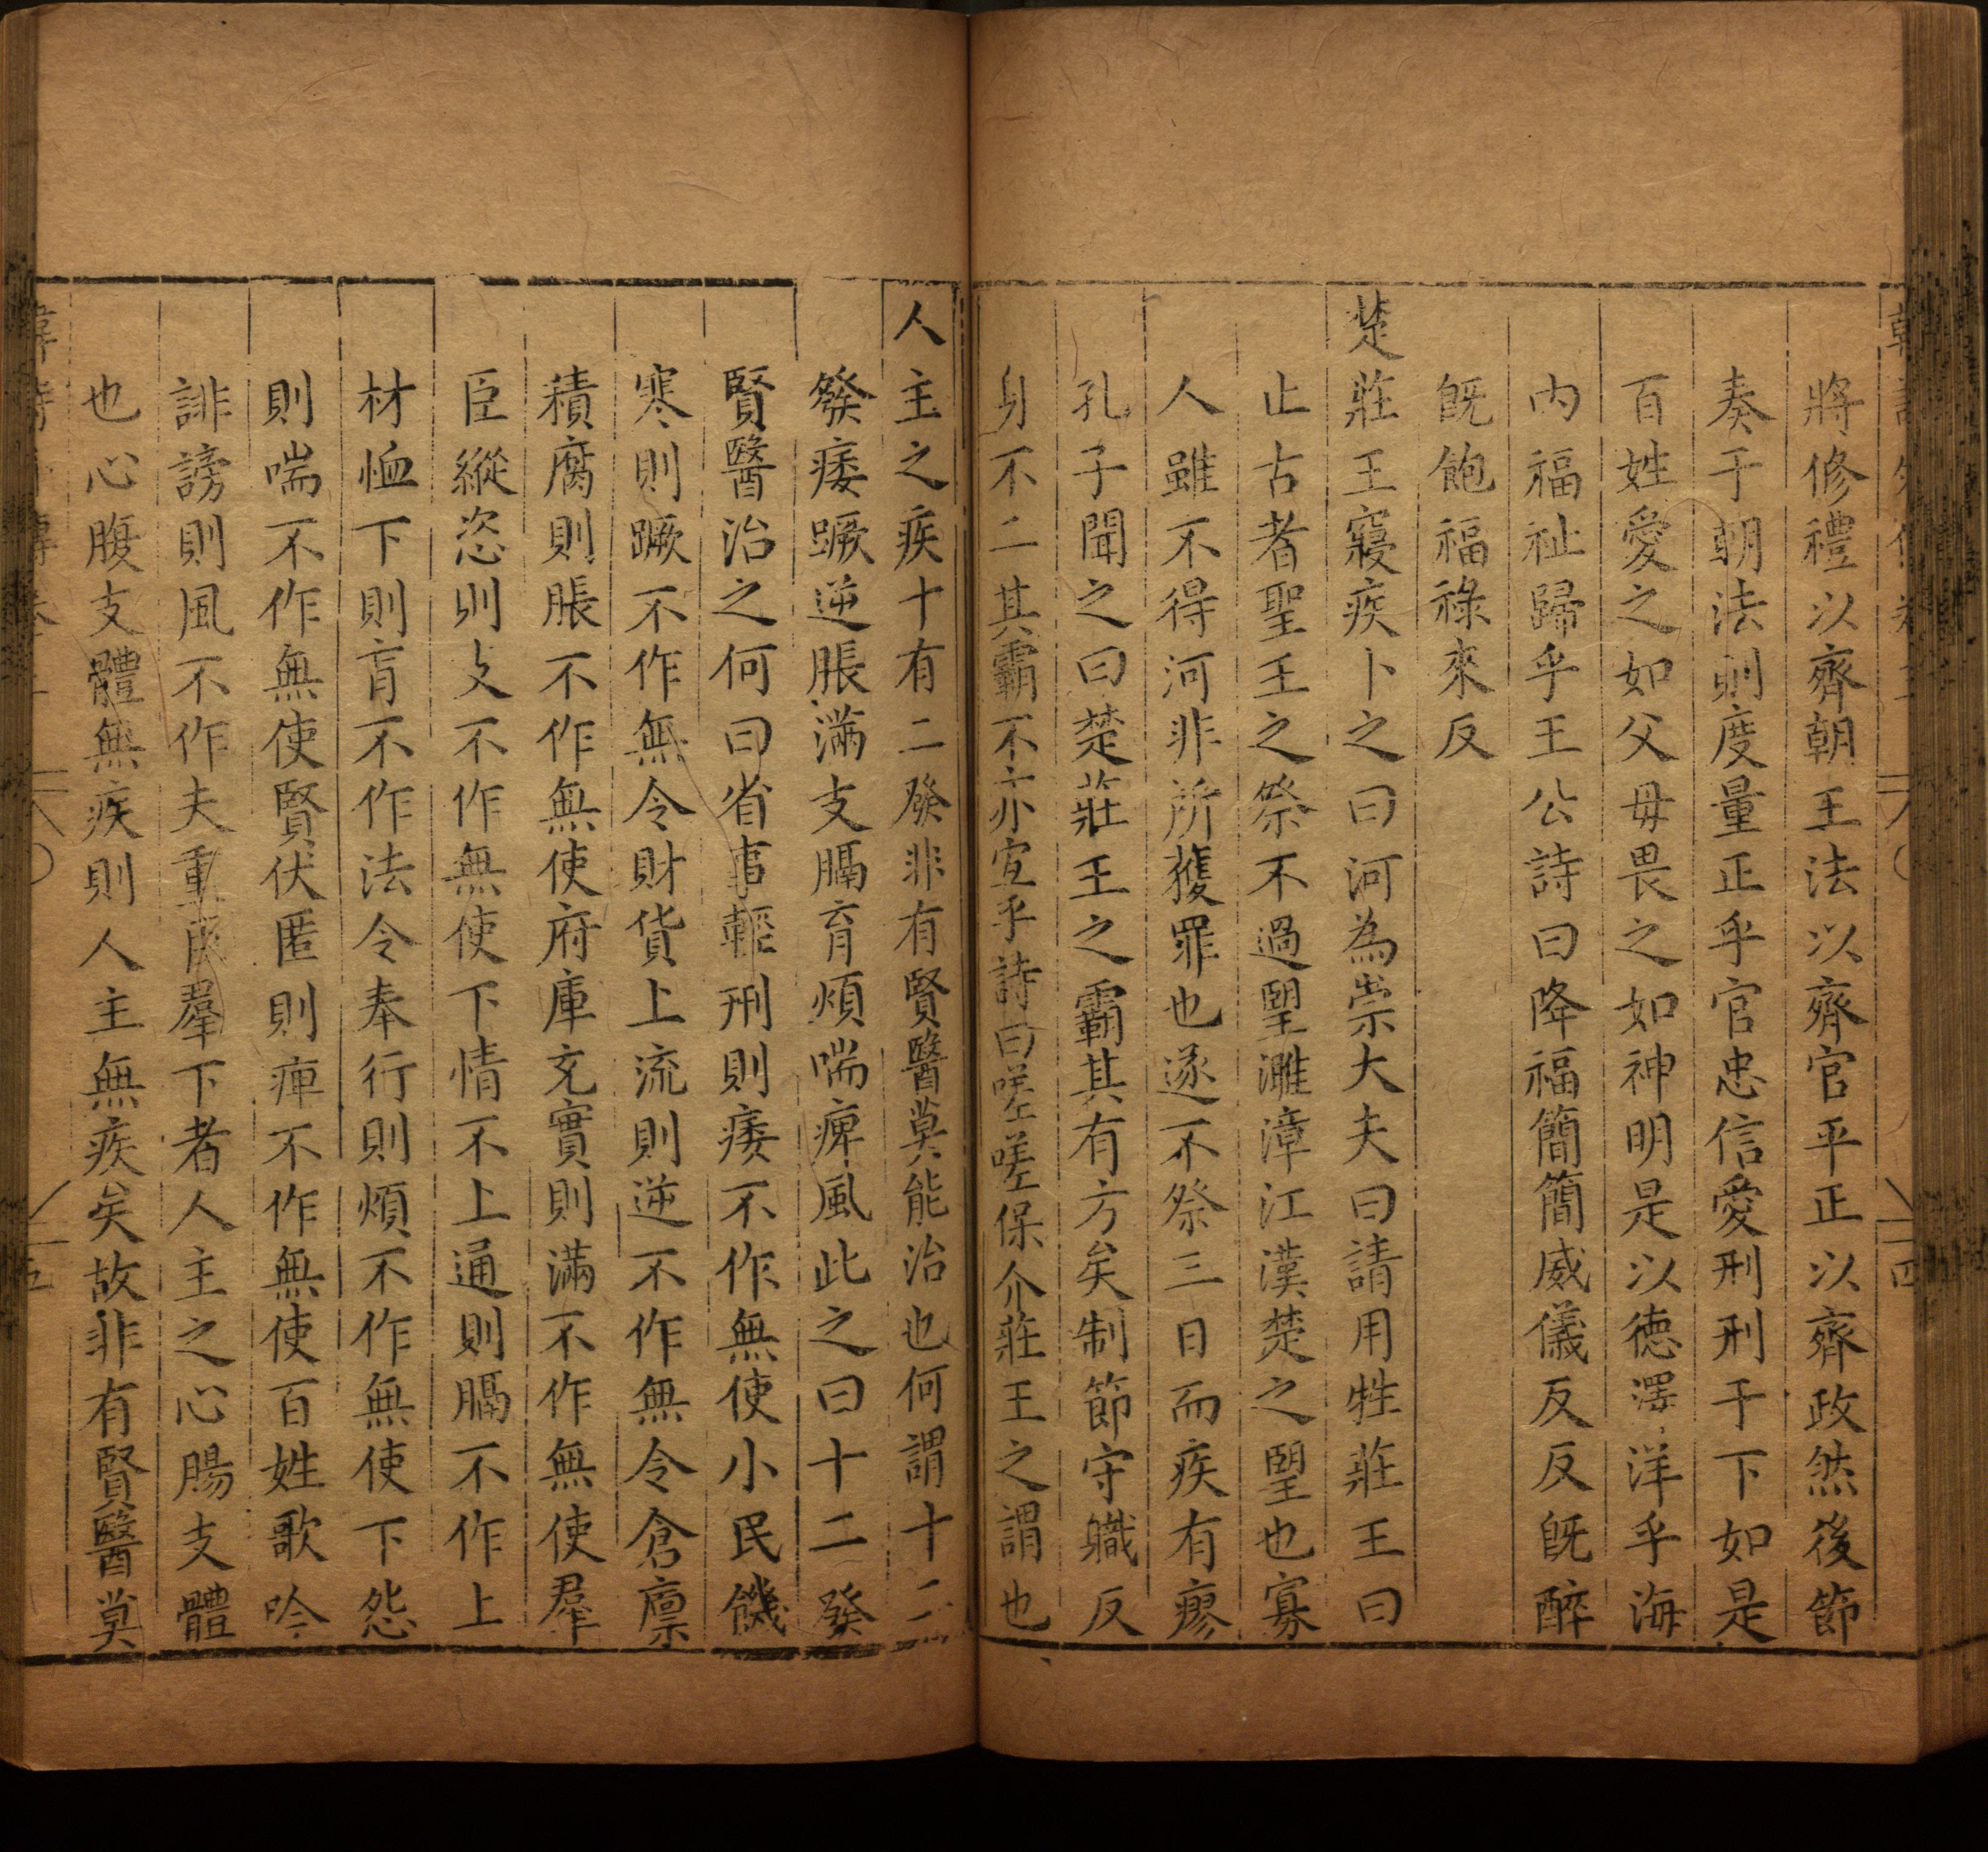 將修禮以齊朝王法以齊官平正以齊政然後節
奏于朝法則度量正乎官忠信愛刑刑于下如是
百姓愛之如父母畏之如神明是以德澤洋乎海
內福祉歸乎王公詩曰降福簡簡威儀反反既醉
既飽福祿來反
楚莊王寢疾卜之曰河為祟大夫曰請用牲莊王曰
止古者聖王之祭不過朢濉漳江漢楚之朢也寡
人雖不得河非所獲罪也遂不祭三日而疾有瘳
孔子聞之曰楚莊王之霸其有方矣制節守職反
身不二其霸不亦宜乎詩曰嗟嗟保介莊王之謂也
人主之疾十有二發非有賢醫莫能治也何謂十二
發痿蹶逆脹滿支膈肓煩喘痺風此之曰十二發
賢醫治之何曰省事輕刑則痿不作無使小民饑
寒則蹶不作無令財貨上流則逆不作無令倉廩
積腐則脹不作無使府庫充實則滿不作無使羣
臣縱恣則支不作無使下情不上通則膈不作上
材恤下則肓不作法令奉行則煩不作無使下怨
則喘不作無使賢伏匿則痺不作無使百姓歌吟
誹謗則風不作夫重臣羣下者人主之心腸支體
也心腹支體無疾則人主無疾矣故非有賢醫莫